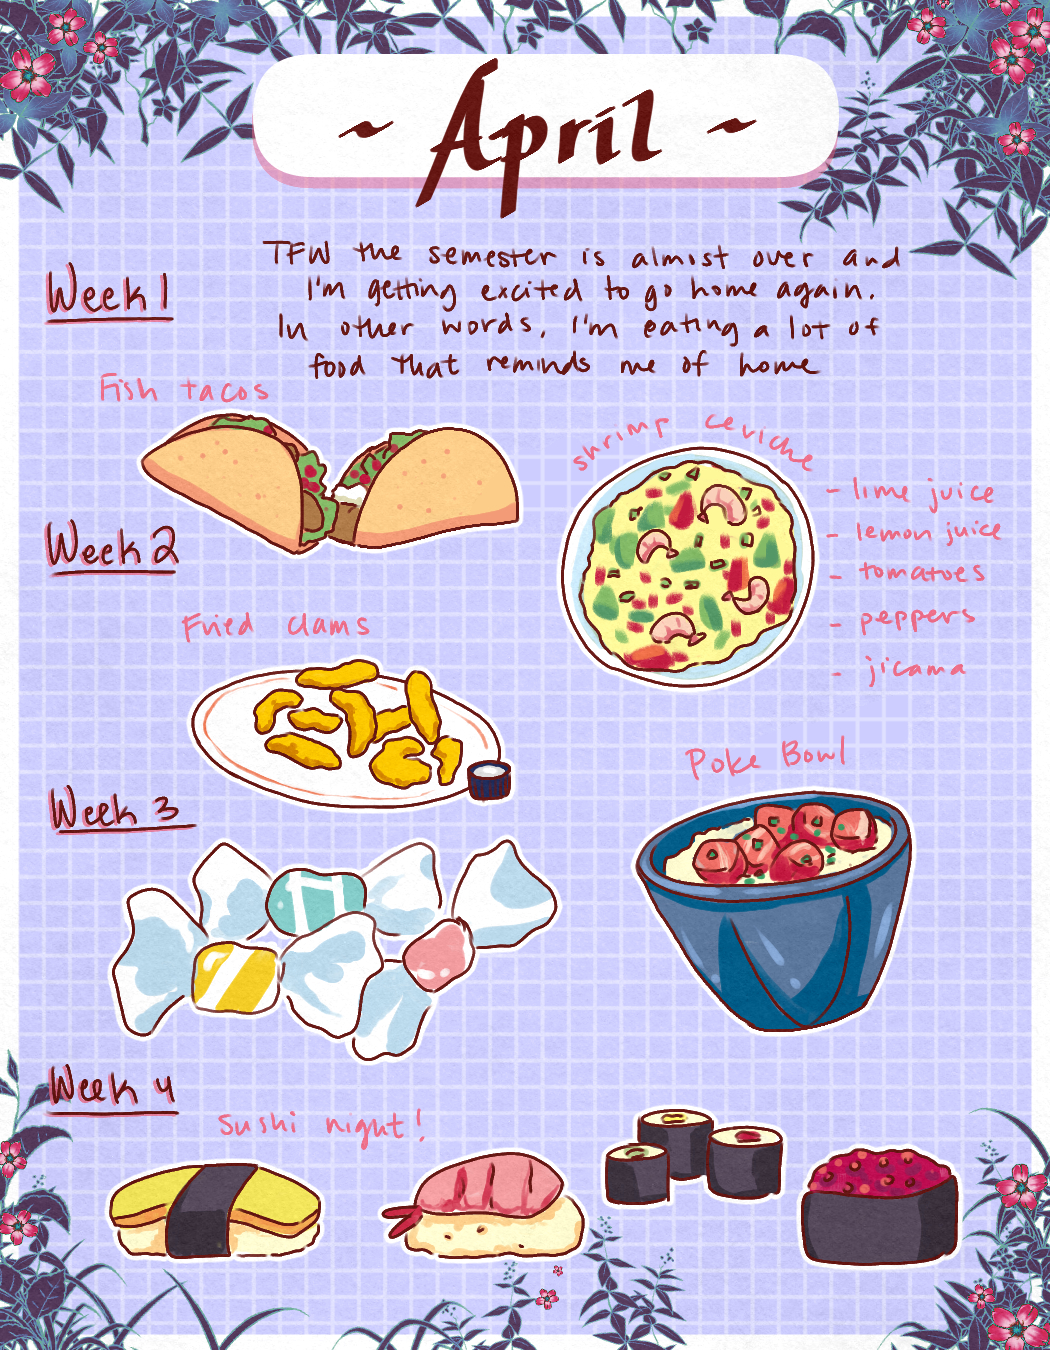 ~ April ~
TFW the semester is almost over and
I'm getting excited to go home again.
In other words, I'm eating a lot of
food that reminds me of home
Week 1
Fish tacos
shrimp ceviche
- lime juice
- lemon juice
- tomatoes
- peppers
- jicama
Week 2
Fried clams
Poke Bowl
Week 3
Week 4
Sushi night!